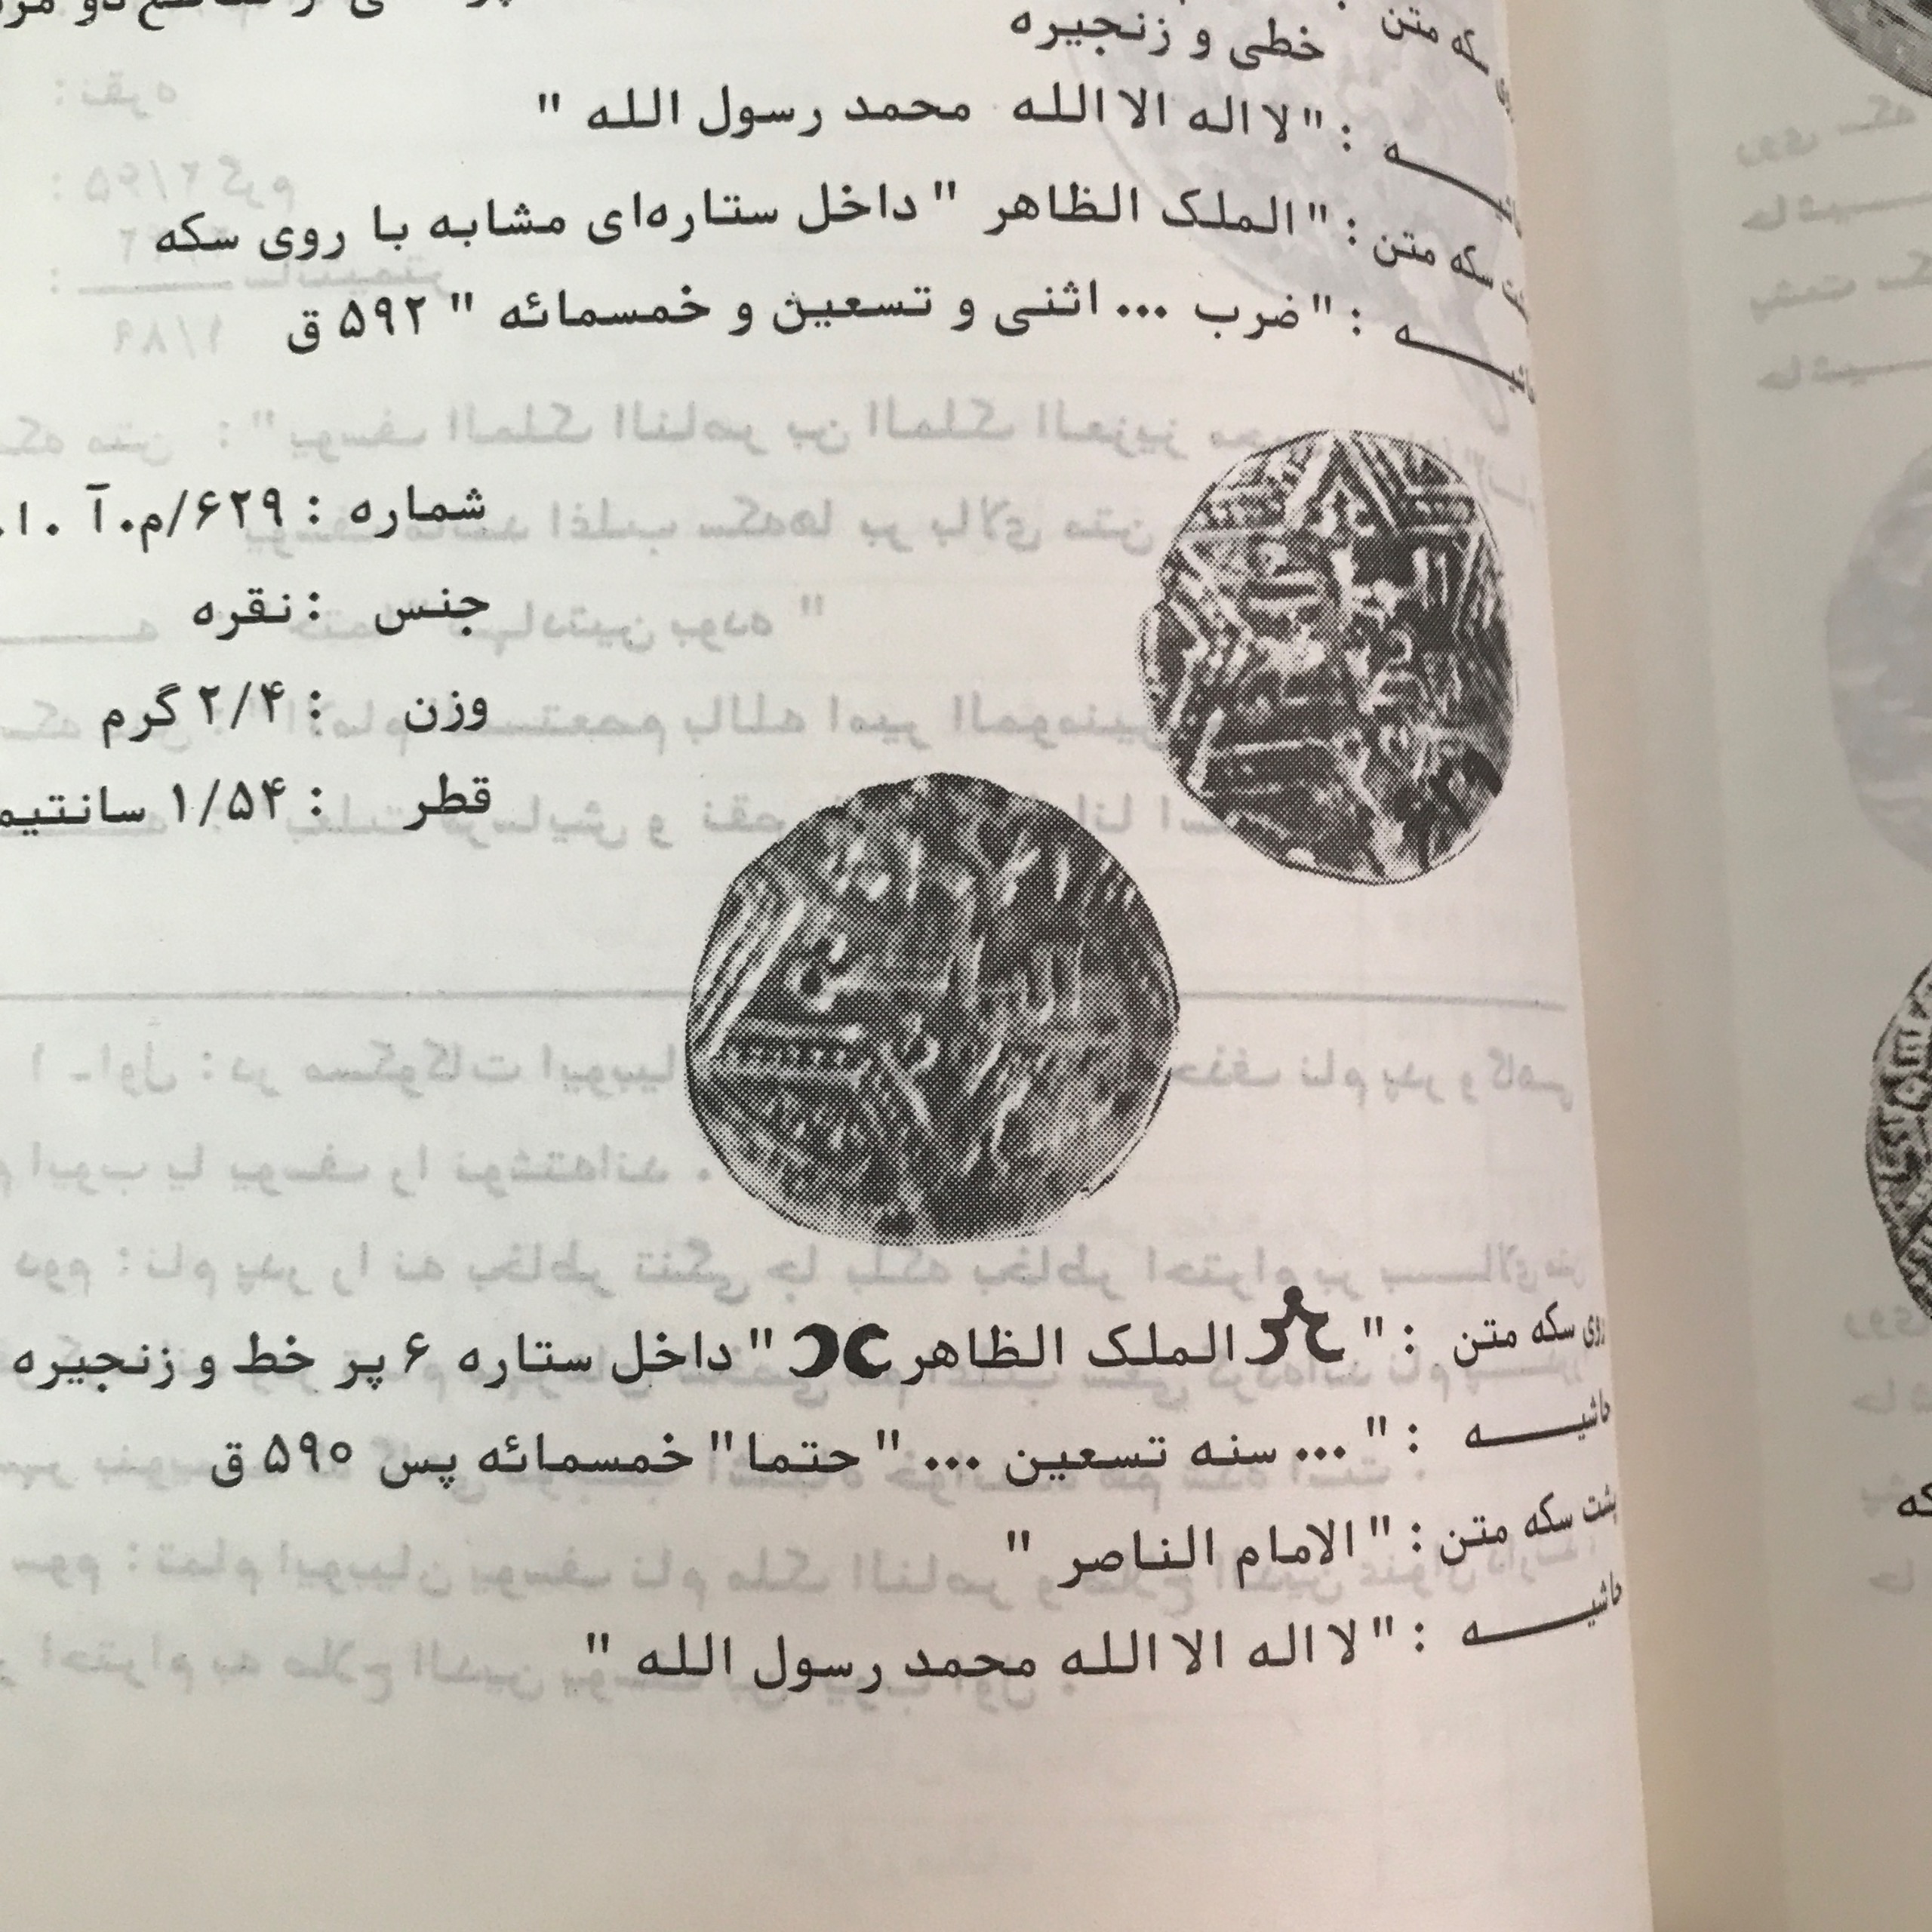 خطی و زنجیره
سکه متن :
ـه : "لا اله الا الله محمد رسول الله "
سکه متن : "الملک الظاهر " داخل ستاره‌ای مشابه با روی سکه
ـه : "ضرب ... اثنی و تسعین و خمسمائه " ۵۹۲ ق
شماره : ۶۲۹/م.آ .ا.
جنس : نقره
وزن : ۲/۴ گرم
قطر : ۱/۵۴ سانتیم
روی سکه متن : " الملک الظاهر " داخل ستاره ۶ پر خط و زنجیره
حاشیــه : " ... سنه تسعین ... " حتما" خمسمائه پس ۵۹۰ ق
پشت سکه متن : "الامام الناصر "
حاشیــه : "لا اله الا الله محمد رسول الله "